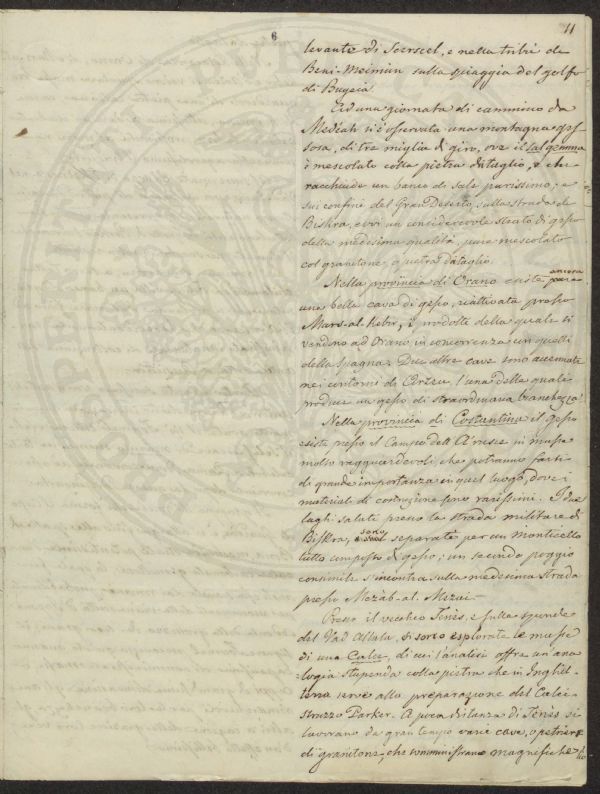 6
11
levante di Scerscel, e nella tribù de
Beni-Meimun sulla spiaggia del golfo
di Bugeia.
Ad una giornata di cammino da
Medéah si è osservata una montagna gips-
sosa, di tre miglia di giro, ove il sal gemma
è mescolato colla pietra da taglio, e che
racchiude un banco di sale purissimo; e
sui confini del Gran Deserto, sulla strada di
Biskra, evvi un considerevole strato di gesso
della medesima qualità, pure mescolato
col granitone, o pietra da taglio.
Nella provincia di Orano esiste ancora
una bella cava di gesso, riattivata presso
Mars-al-Kebir, i prodotti della quale si
vendono ad Orano in concorrenza con quelli
della Spagna. Due altre cave sono accennate
nei contorni di Arzeu l'una della quale
produce un gesso di straordinaria bianchezza.
Nella provincia di Costantina il gesso
esiste presso il Campo dell' Arouc in masse
molto ragguardevoli, che potranno farsi
di grande importanza in quel luogo, dove i
materiali di costruzione sono rarissimi. I due
laghi salati presso la strada militare di
Biskra, sono separati per un monticello
tutto composto di gesso; un secondo poggio
consimile s'incontra sulla medesima strada
presso Mezàb-al-Mezai.
Presso il vecchio Tenès, e sulle sponde
del Uad Allala, si sono esplorate le masse
di una Calce, di cui l'analisi offre un'ana-
logia stupenda colla pietra che in Inghil-
terra serve alla preparazione del Calci-
struzzo Parker. A poca distanza di Tenès si
lavorano da gran tempo varie cave, o petriere
di granitone, che somministrano magnifiche